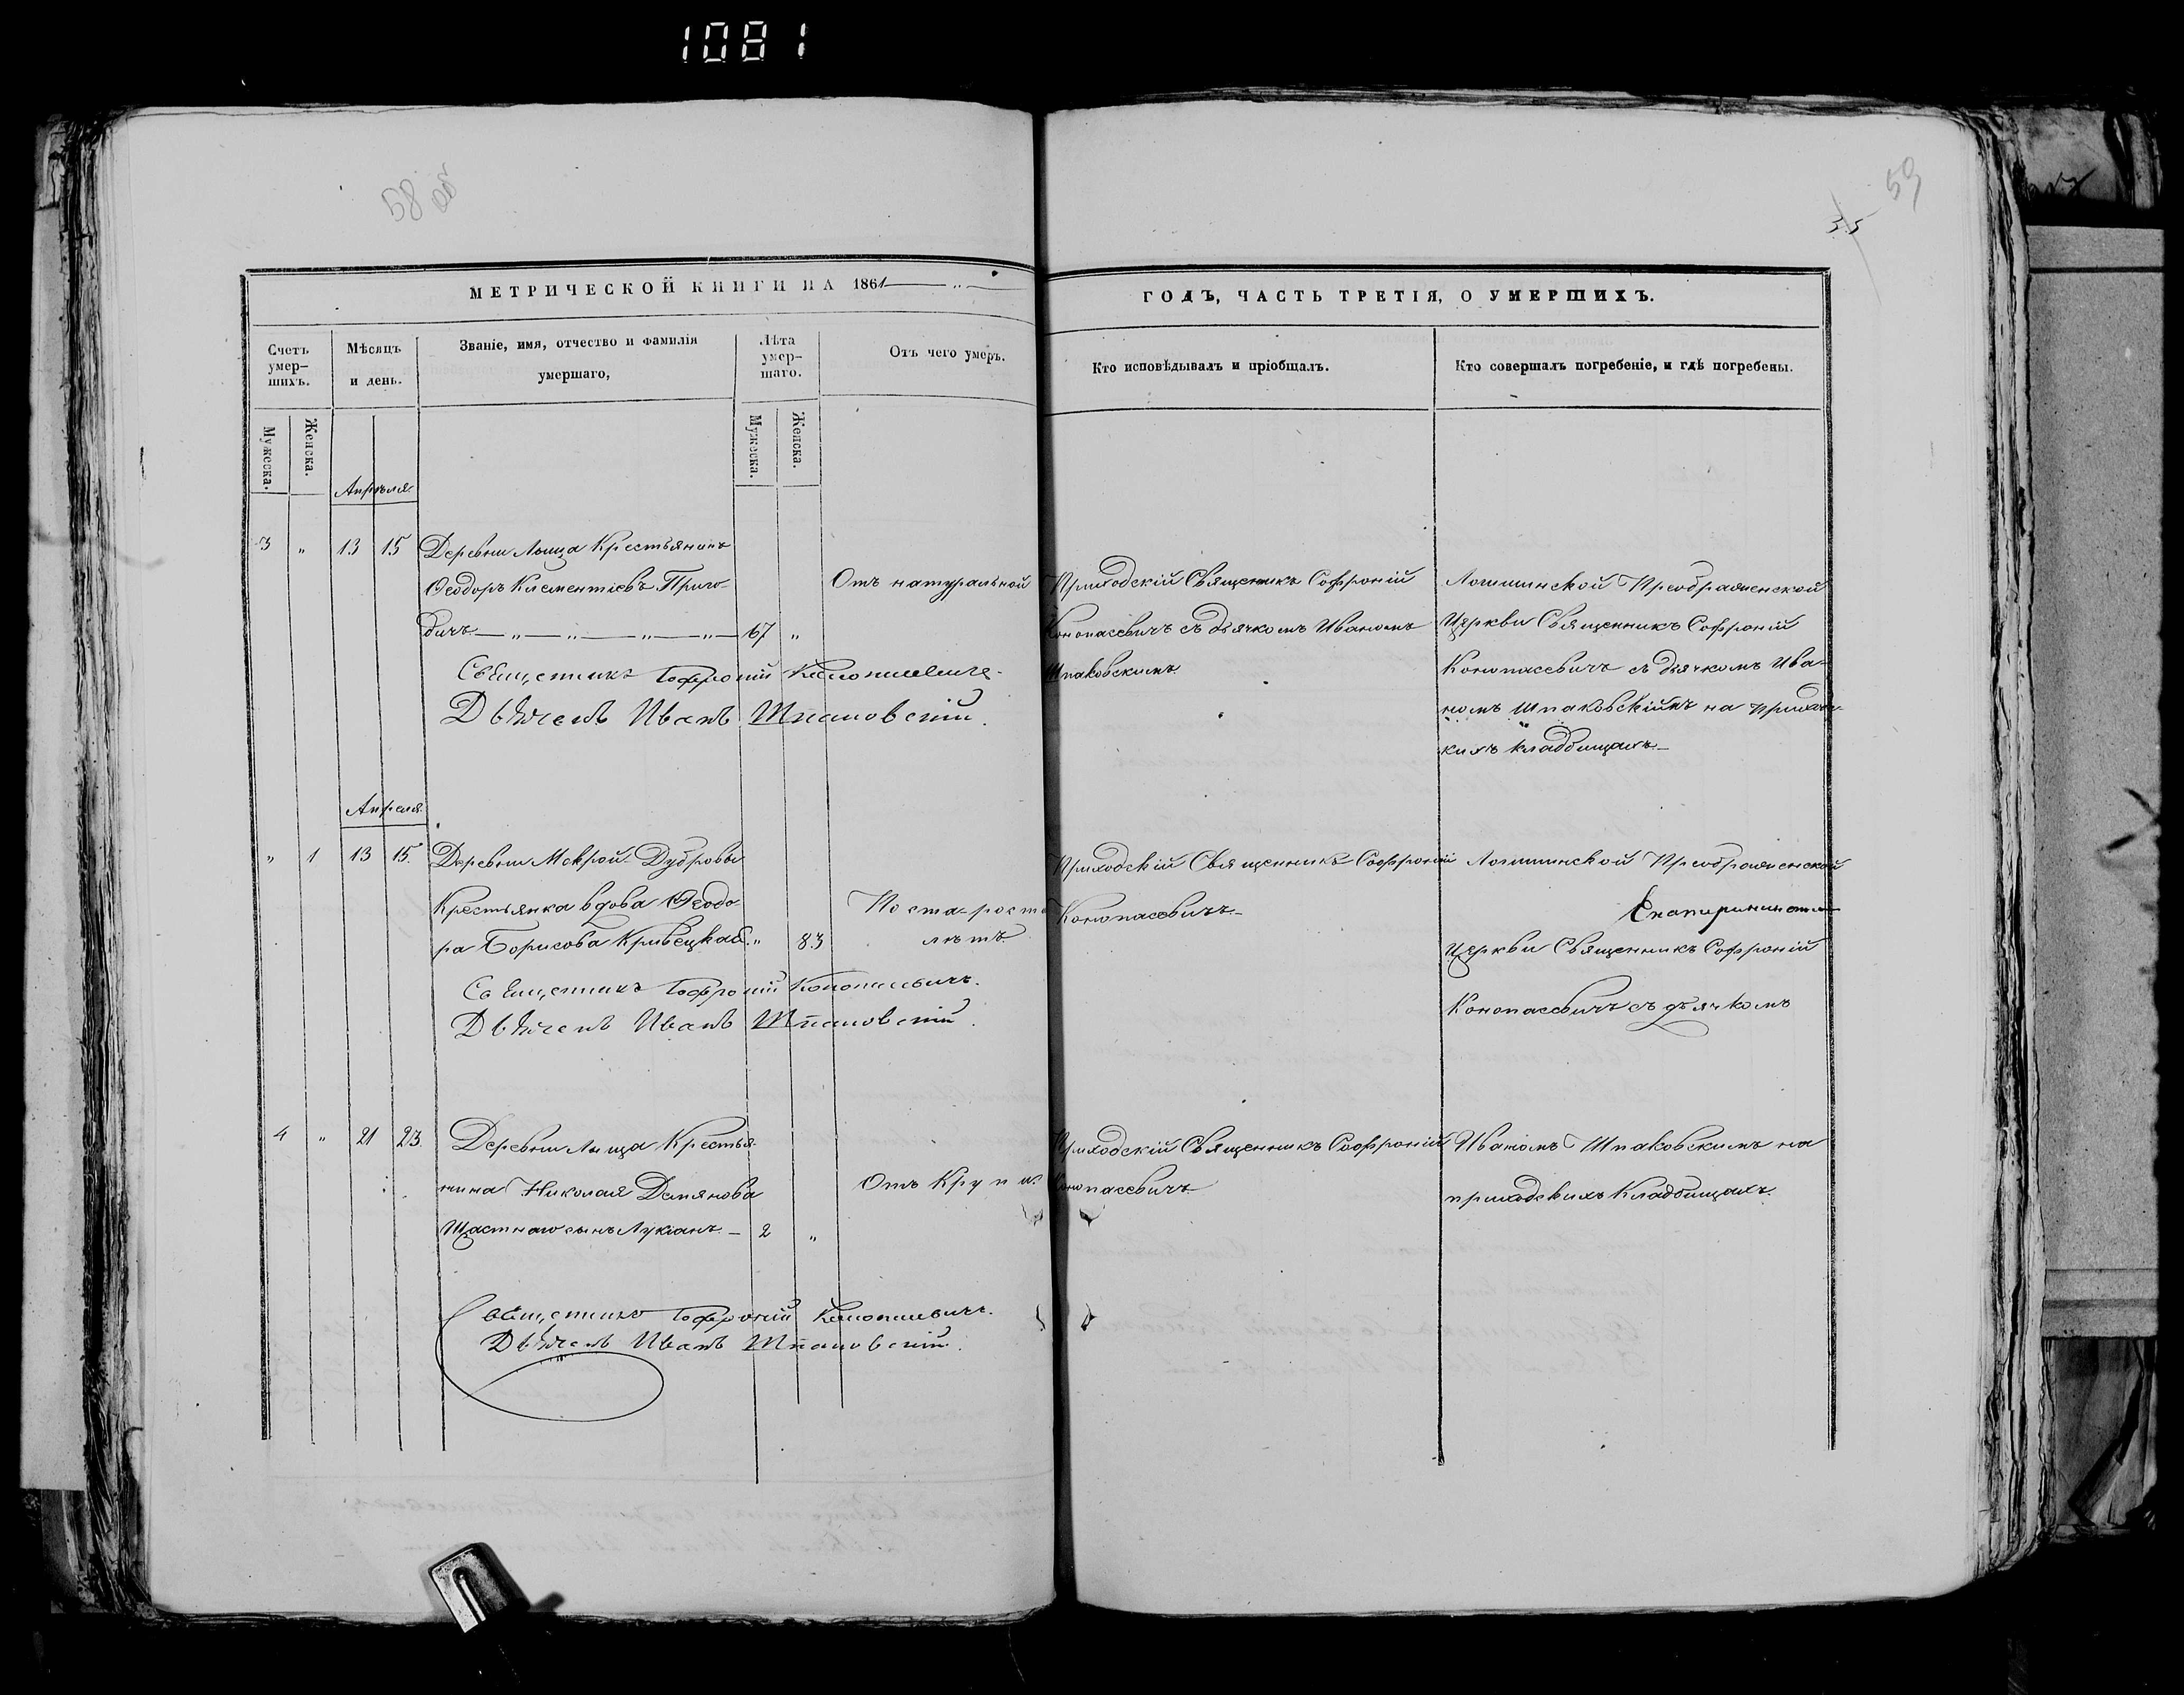 1081
58 об
59
35
МЕТРИЧЕСКОЙ КНИГИ НА 1861
ГОДЪ, ЧАСТЬ ТРЕТІЯ, О УМЕРШИХЪ.
Счетъ умер-шихъ.
Мѣсяцъ и день.
Званіе, имя, отчество и фамилія умершаго,
Лѣта умер-шаго.
Отъ чего умеръ.
Кто исповѣдывалъ и пріобщалъ.
Кто совершалъ погребеніе, и гдѣ погребены.
Мужеска. Женска.
Мужеска. Женска.
Апрѣля
3 " 13 15 Деревни Лыща Крестьянинъ
Ѳеодоръ Климентіевъ Приго-
дичъ — „ — „ — „ — „ — 67 "
Отъ натуральной
Приходскій Священникъ Софроній
Конопасевичъ съ дьячкомъ Иваномъ
Шпаковскимъ
Логишинской Преображенской
Церкви Священникъ Софроній
Конопасевичъ съ дьячкомъ Ива-
номъ Шпаковскимъ на приходс-
кихъ кладбищахъ
Священникъ Софроній Конопасевичъ.
Дьячекъ Иванъ Шпаковскій.
Апреля
" 1 13 15. Деревни Мокрой Дубровы
Крестьянка вдова Ѳеодо-
ра Борисова Кривецкая " 83
По ста-рости
лѣтъ
Приходскій Священникъ Софроній
Конопасевичъ
Логишинской Преображенской
Церкви Священникъ Софроній
Конопасевичъ съ дьячкомъ
Священникъ Софроній Конопасевичъ.
Дьячекъ Иванъ Шпаковскій.
4 " 21 23. Деревни Лыща Крестья-
нина Николая Демянова
Щастнаго сынъ Лукіанъ — 2 "
Отъ Крупа
Приходскій Священникъ Софроній
Конопасевичъ
Иваномъ Шпаковскимъ на
приходскихъ Кладбищахъ.
Священникъ Софроній Конопасевичъ.
Дьячекъ Иванъ Шпаковскій.